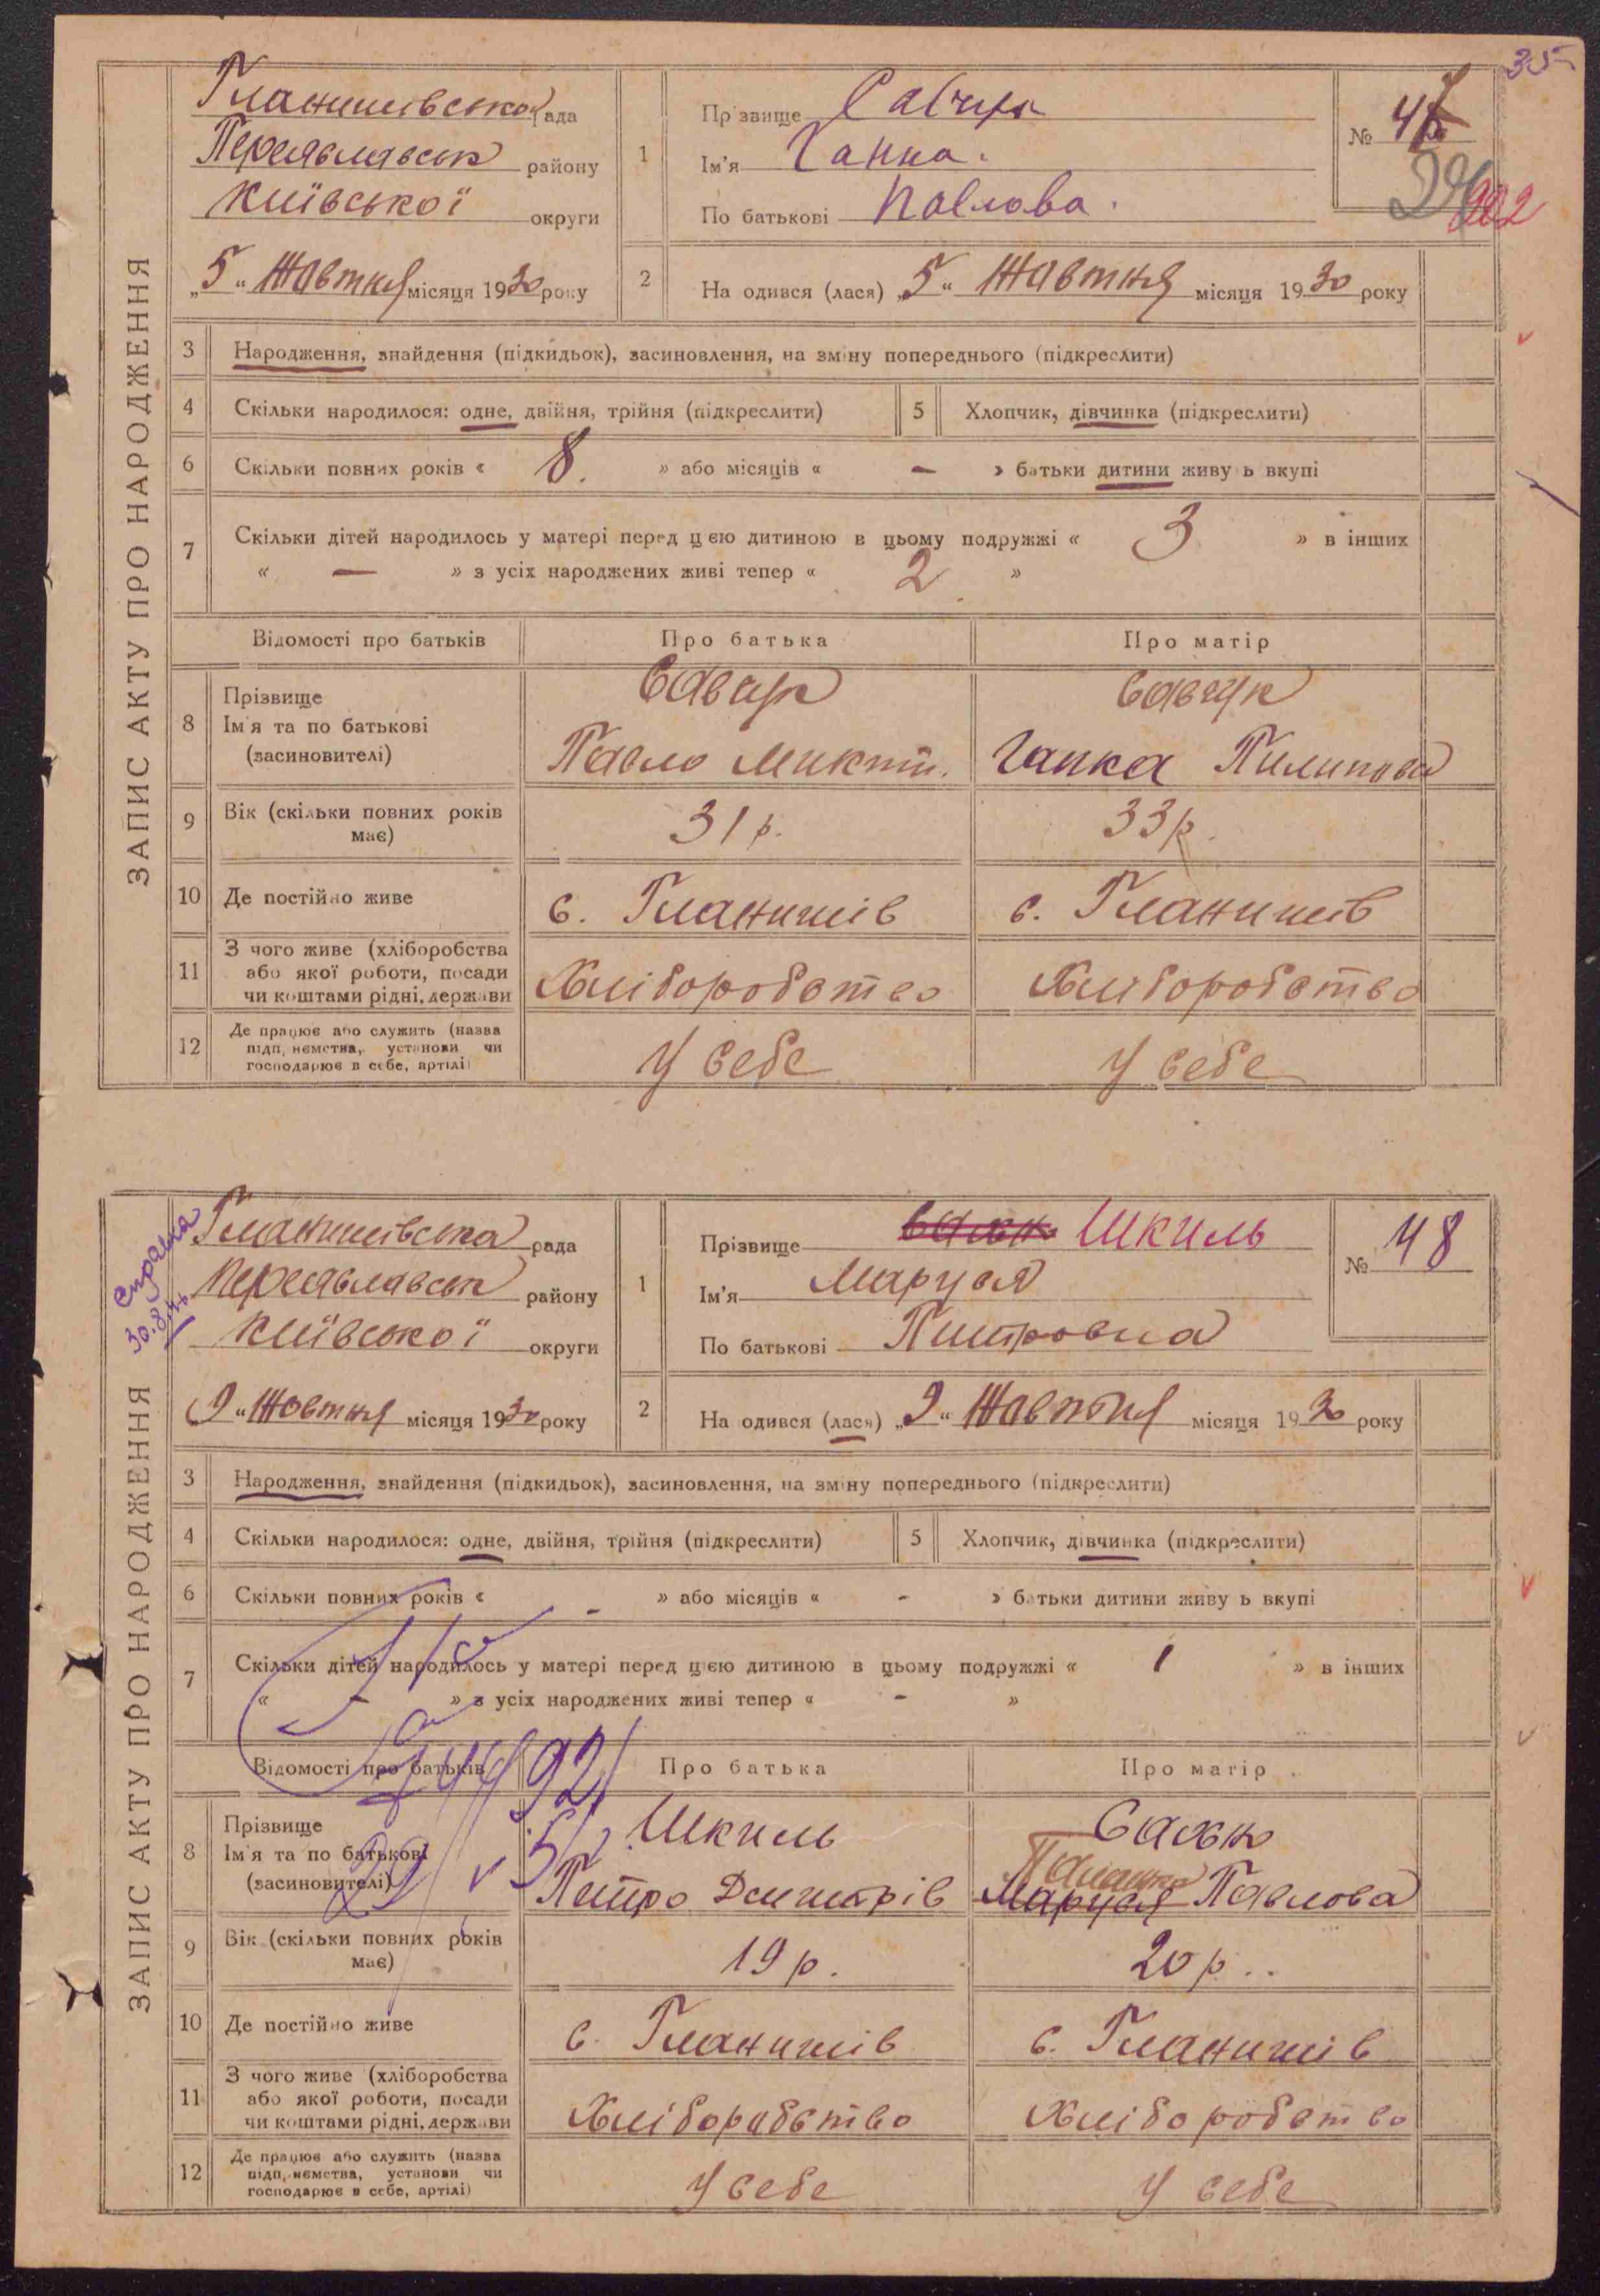 35
ЗАПИС АКТУ ПРО НАРОДЖЕННЯ
Гланишівська рада
Переяславськ району
Київської округи
„5“ Жовтня місяця 1930 року
1
Прізвище Савчук
Ім'я Ганна.
По батькові Павлова.
№ 47
902
2
На одився (лася) „5“ Жовтня місяця 1930 року
3 Народження, знайдення (підкидьок), засиновлення, на зміну попереднього (підкреслити)
4 Скільки народилося: одне, двійня, трійня (підкреслити)
5 Хлопчик, дівчинка (підкреслити)
6 Скільки повних років « 8. » або місяців « - » батьки дитини живуть вкупі
7 Скільки дітей народилось у матері перед цією дитиною в цьому подружжі « 3 » в інших
« — » з усіх народжених живі тепер « 2 »
Відомості про батьків Про батька Про матір
8 Прізвище
Ім'я та по батькові
(засиновителі)
Савчук
Павло Микит.
Савчук
Ганка Пилипова
9 Вік (скільки повних років має) 31 р. 33 р.
10 Де постійно живе с. Гланишів с. Гланишів
11 З чого живе (хліборобства
або якої роботи, посади
чи коштами рідні, держави
Хліборобство Хліборобство
12 Де працює або служить (назва
підприємства, установи чи
господарює в себе, артілі)
У себе У себе
ЗАПИС АКТУ ПРО НАРОДЖЕННЯ
Справка
Гланишівська рада
Переяславськ району
Київської округи
„9“ Жовтня місяця 1930 року
1
Прізвище Шкиль
Ім'я Маруся
По батькові Питровна
№ 48
2
На одився (лася) „9“ Жовтня місяця 1930 року
3 Народження, знайдення (підкидьок), засиновлення, на зміну попереднього (підкреслити)
4 Скільки народилося: одне, двійня, трійня (підкреслити)
5 Хлопчик, дівчинка (підкреслити)
6 Скільки повних років « - » або місяців « - » батьки дитини живуть вкупі
7 Скільки дітей народилось у матері перед цією дитиною в цьому подружжі « 1 » в інших
« - » з усіх народжених живі тепер « - »
Відомості про батьків Про батька Про матір
8 Прізвище
Ім'я та по батькові
(засиновителі)
Шкиль
Питро Дмитрів
Маруся Павлова
9 Вік (скільки повних років має) 19 р. 20 р..
10 Де постійно живе с. Гланишів с. Гланишів
11 З чого живе (хліборобства
або якої роботи, посади
чи коштами рідні, держави
Хліборобство Хліборобство
12 Де працює або служить (назва
підприємства, установи чи
господарює в себе, артілі)
У себе У себе